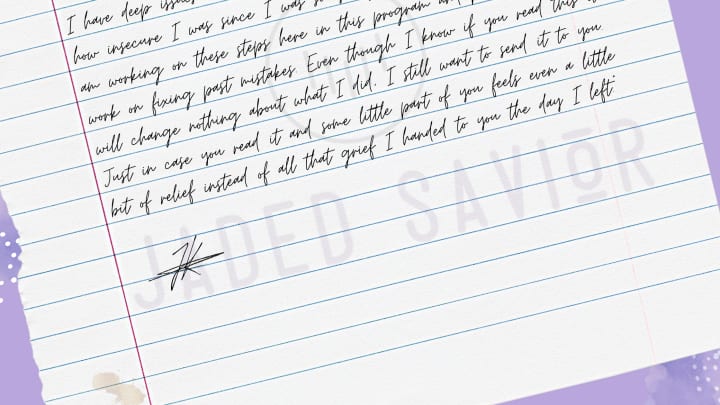 I have deep
how insecure I was since I was
am working on these steps here in this program and
work on fixing past mistakes. Even though I know if you read this
will change nothing about what I did. I still want to send it to you
Just in case you read it and some little part of you feels even a little
bit of relief instead of all that grief I handed to you the day I left.
JK
JADED SAVIOR